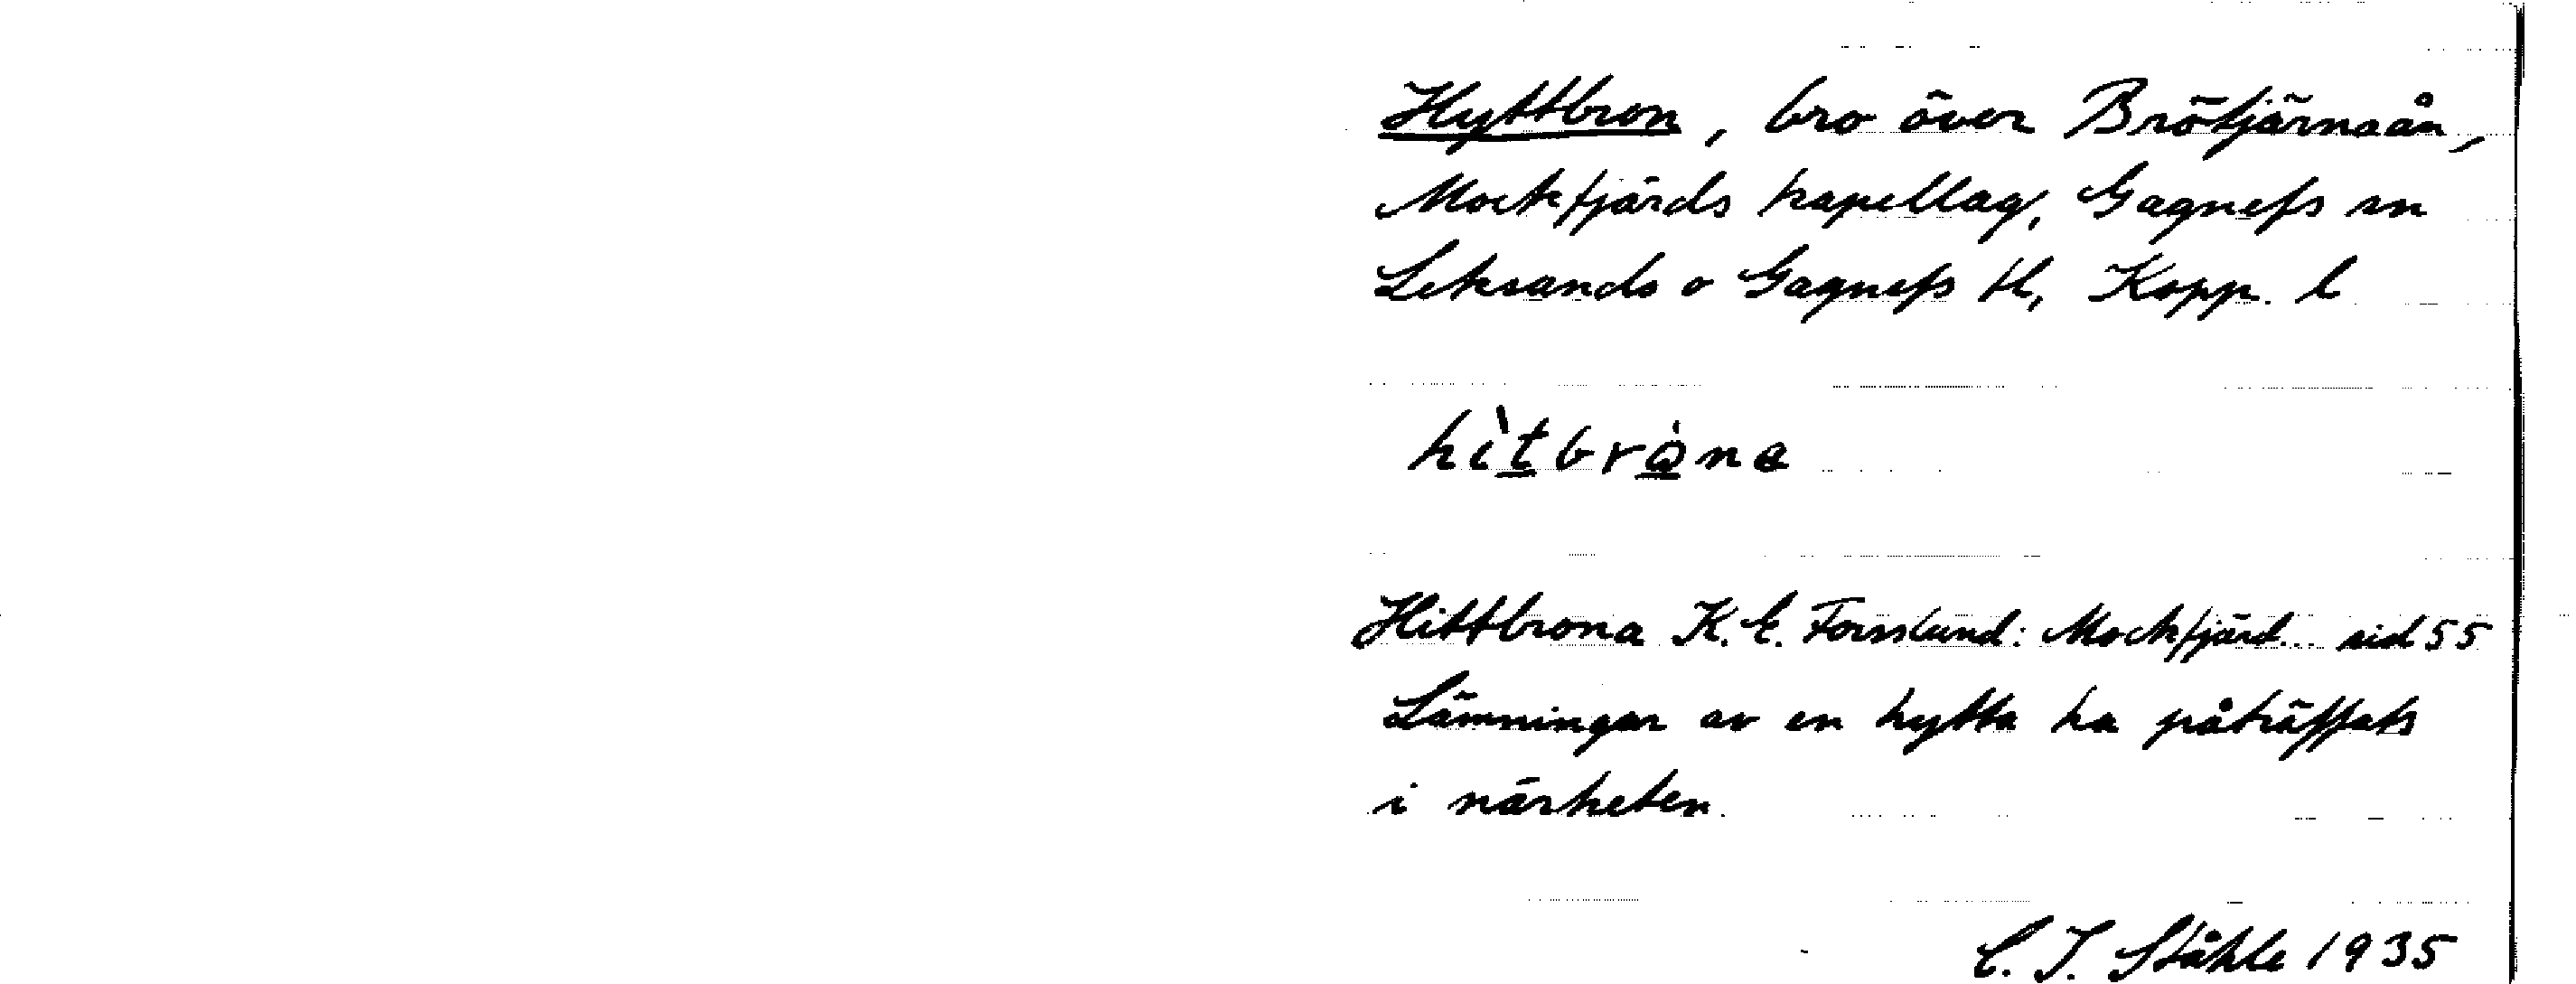 Hyttbron, bro över Brötjärnaån,
Mockfjärds kapellag, Gagnefs sn
Leksands o Gagnefs tl, Kopp. l
hìtbròna
Hittbrona K. E. Forsslund: Mockfjärd... sid 55
Lämningar av en hytta ha påträffats
i närheten.
C. I. Ståhle 1935